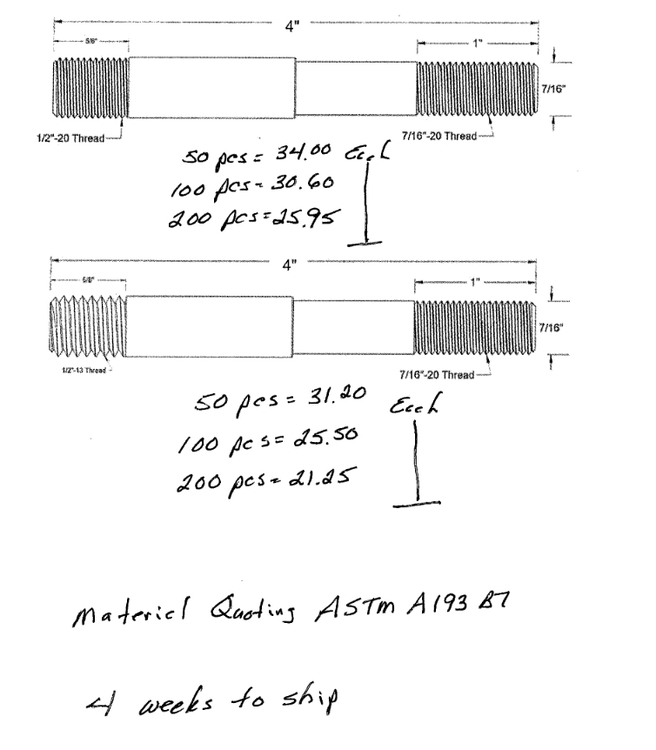 4"
5/8"
1"
7/16"
1/2"-20 Thread
7/16"-20 Thread
50 pcs = 34.00 Each
100 pcs = 30.60
200 pcs = 25.95
4"
5/8"
1"
7/16"
1/2"-13 Thread
7/16"-20 Thread
50 pcs = 31.20 Each
100 pcs = 25.50
200 pcs = 21.25
Material Quoting ASTM A193 B7
4 weeks to ship